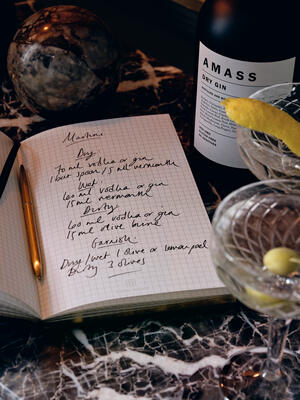 Martini
Dry
70 ml vodka or gin
1 bar spoon / 5 ml vermouth
Wet
60 ml vodka or gin
15 ml vermouth
Dirty
60 ml vodka or gin
15 ml olive brine
Garnish
Dry / wet 1 olive or lemon peel
Dirty 3 olives
AMASS
DRY GIN